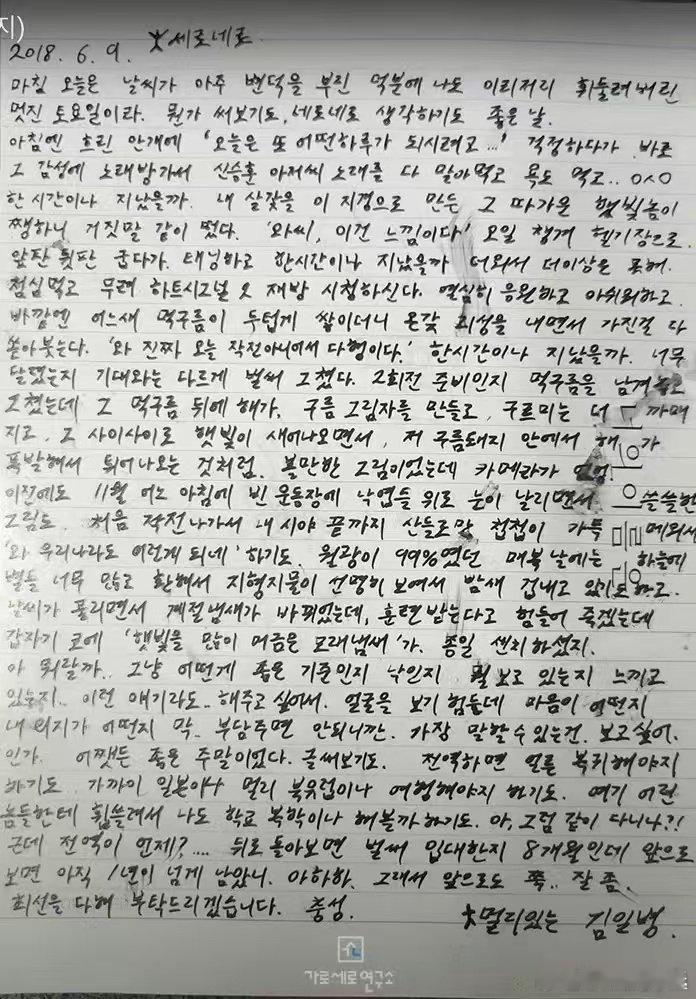 지)
2018. 6. 9. 세로네로.
마침 오늘은 날씨가 아주 변덕을 부린 덕분에 나도 이리저리 휘둘려버린
멋진 토요일이라. 뭔가 써보기도, 네로네로 생각하기도 좋은 날.
아침엔 흐린 안개에 '오늘은 또 어떤하루가 되시려고...' 걱정하다가 바로
그 감성에 노래방가서 신승훈 아저씨 노래를 다 말아먹고 욕도 먹고..
한시간이나 지났을까. 내 살갗을 이 지경으로 만든 그 따가운 햇빛놈이
쨍하니 거짓말 같이 떴다. '와씨, 이건 느낌이다' 오일 챙겨 헬기장으로.
앞판 뒷판 굽다가. 태닝하고 한시간이나 지났을까 더워서 더이상은 못해.
점심먹고 무려 하트시그널 2 재방 시청하신다. 열심히 응원하고 아쉬워하고.
바깥엔 어느새 먹구름이 두텁게 쌓이더니 온갖 괴성을 내면서 가진걸 다
쏟아붓는다. '와 진짜 오늘 작전아니어서 다행이다.' 한시간이나 지났을까. 너무
달렸는지 기대와는 다르게 벌써 그쳤다. 2회전 준비인지 먹구름을 남겨놓고
그쳤는데 그 먹구름 뒤에 해가. 구름 그림자를 만들고, 구르미는 더 까매
지고. 그 사이사이로 햇빛이 새어나오면서, 저 구름돼지 안에서 해가
폭발해서 튀어나오는 것처럼. 볼만한 그림이었는데 카메라가
이전에도 11월 어느 아침에 빈 운동장에 낙엽들 위로 눈이 날리면서 쓸쓸한
그림도. 처음 작전나가서 내 시야 끝까지 산들로만 첩첩이 가득 메워서
'와 우리나라도 이렇게 되네' 하기도. 월광이 99%였던 매복 날에는 하늘에
별들 너무 많고 환해서 지형지물이 선명히 보여서 밤새 겁내고 있기도하고.
날씨가 풀리면서 계절냄새가 바뀌었는데, 훈련받는다고 힘들어 죽겠는데
갑자기 코에 '햇빛을 많이 머금은 모래냄새'가. 종일 센치하셨지.
아 뭐랄까.. 그냥 어떻게 좋은 기준인지 낙인지 뭘보고 있는지 느끼고
있는지.. 이런 얘기라도.. 해주고 싶어서. 얼굴을 보기 힘든데 마음이 어떤지
내 의지가 어떤지 막.. 부담주면 안되니깐. 가장 말할수있는건. 보고싶어.
인가. 어쨌든 좋은 주말이었다. 글써보기도. 전역하면 얼른 복귀해야지
하기도. 가까이 일본이나 멀리 북유럽이나 여행해야지 하기도. 여기 어린
놈들한테 휩쓸려서 나도 학교 복학이나 해볼까하기도. 아, 그럼 같이 다니나?!
근데 전역이 언제?.... 뒤로 돌아보면 벌써 입대한지 8개월인데 앞으로
보면 아직 1년이 넘게 남았니. 아하하. 그래서 앞으로도 쭉.. 잘 좀.
최선을 다해 부탁드리겠습니다. 충성.
멀리있는 김일병.
가로세로연구소